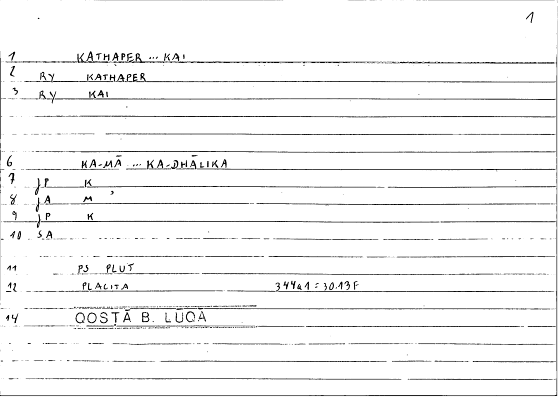 1
1 KATHAPER ... KAI
2 RY KATHAPER
3 RY KAI
6 KA-MĀ ... KA-DHĀLIKA
7 jP K
8 jA M ʾ
9 jP K
10 SA
11 PS PLUT
12 PLACITA 344a1 = 30.13F
14 QOSṬĀ B. LUQA